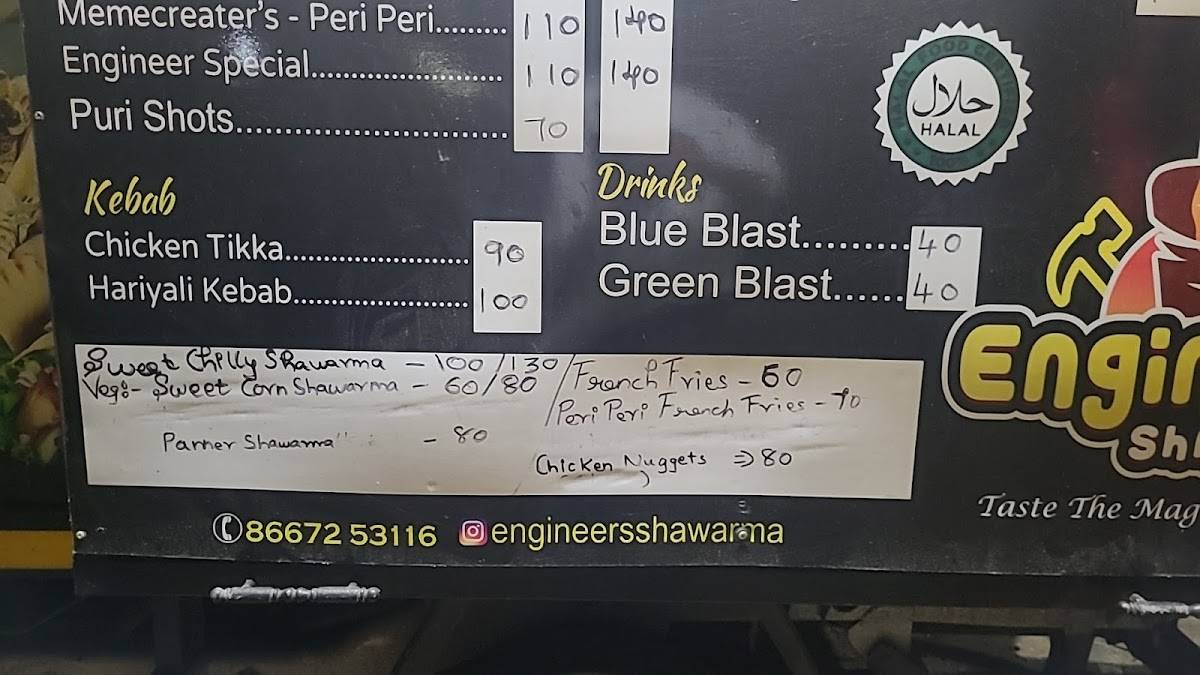 Memecreater's - Peri Peri......... 110 140
Engineer Special........................ 110 140
Puri Shots............................. 70
Kebab
Chicken Tikka........................ 90
Hariyali Kebab....................... 100
Drinks
Blue Blast......... 40
Green Blast...... 40
حلال
HALAL
Sweet Chilly Shawarma - 100/130
Veg:- Sweet Corn Shawarma - 60/80
Panner Shawarma - 80
French Fries - 60
Peri Peri French Fries - 70
Chicken Nuggets ⇒ 80
Engin
Sh
Taste The Mag
86672 53116 engineersshawarma